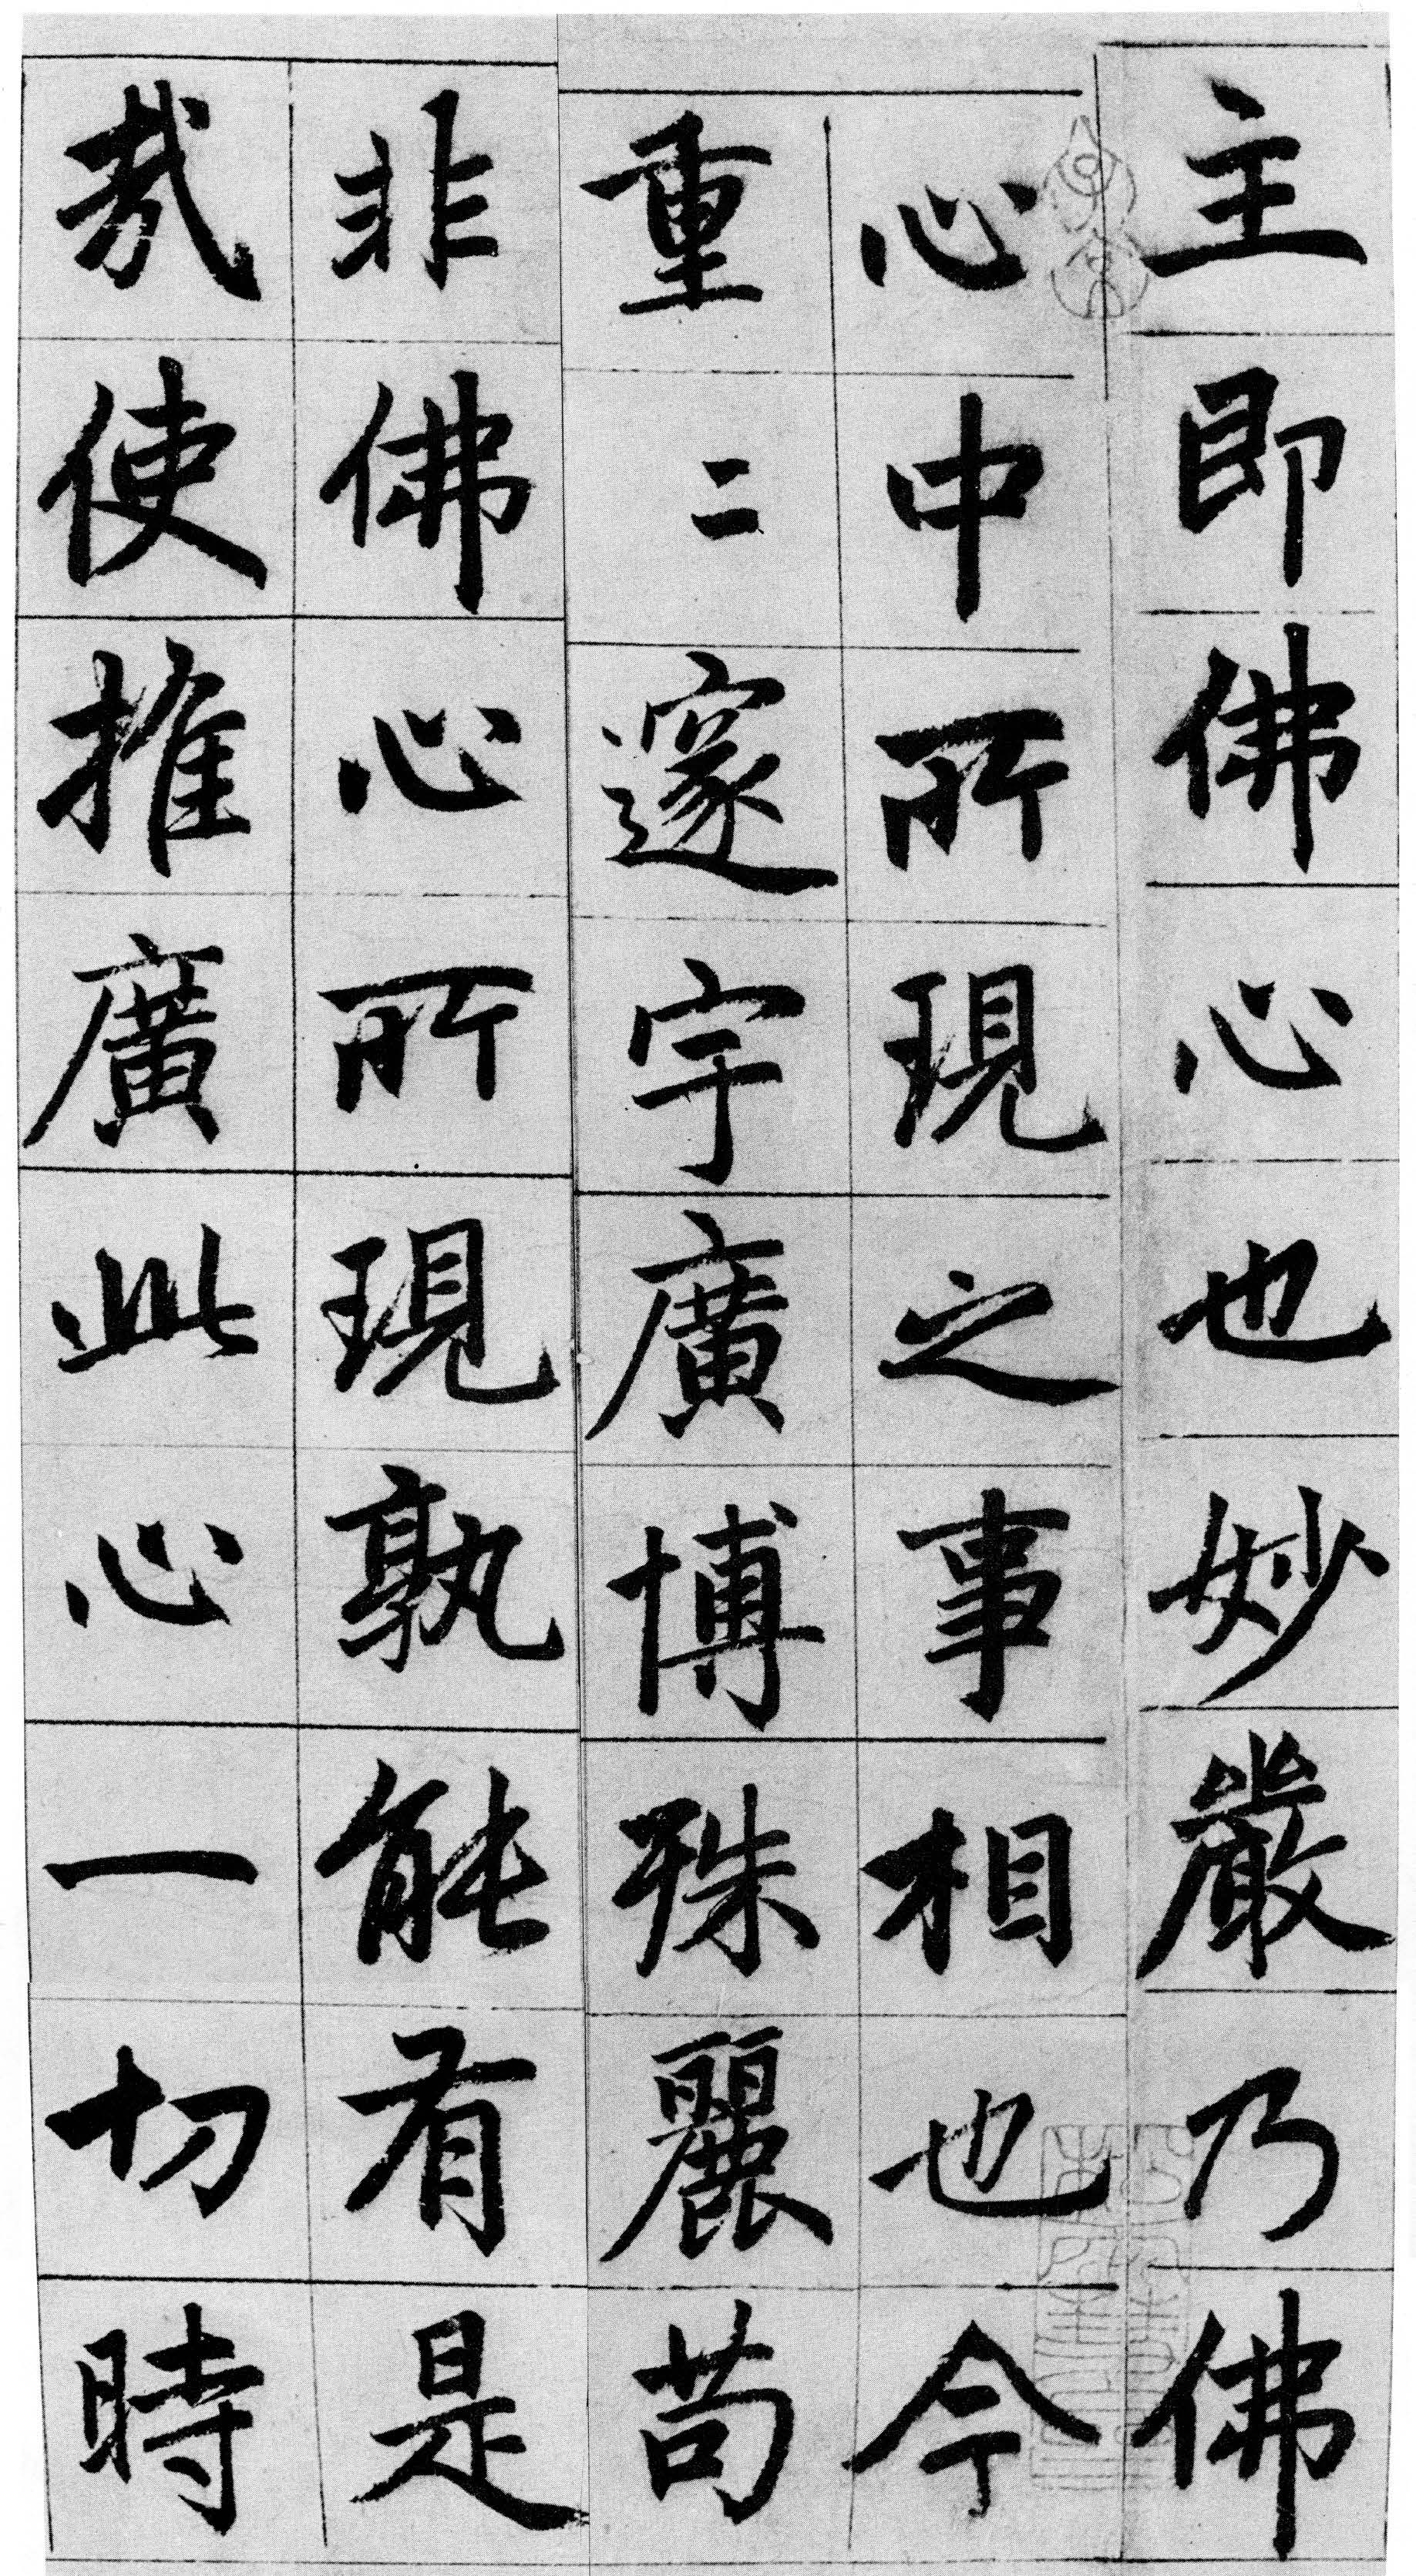 主即佛心也妙嚴乃佛
心中所現之事相也今
重〻邃宇廣博殊麗苟
非佛心所現孰能有是
哉使推廣此心一切時